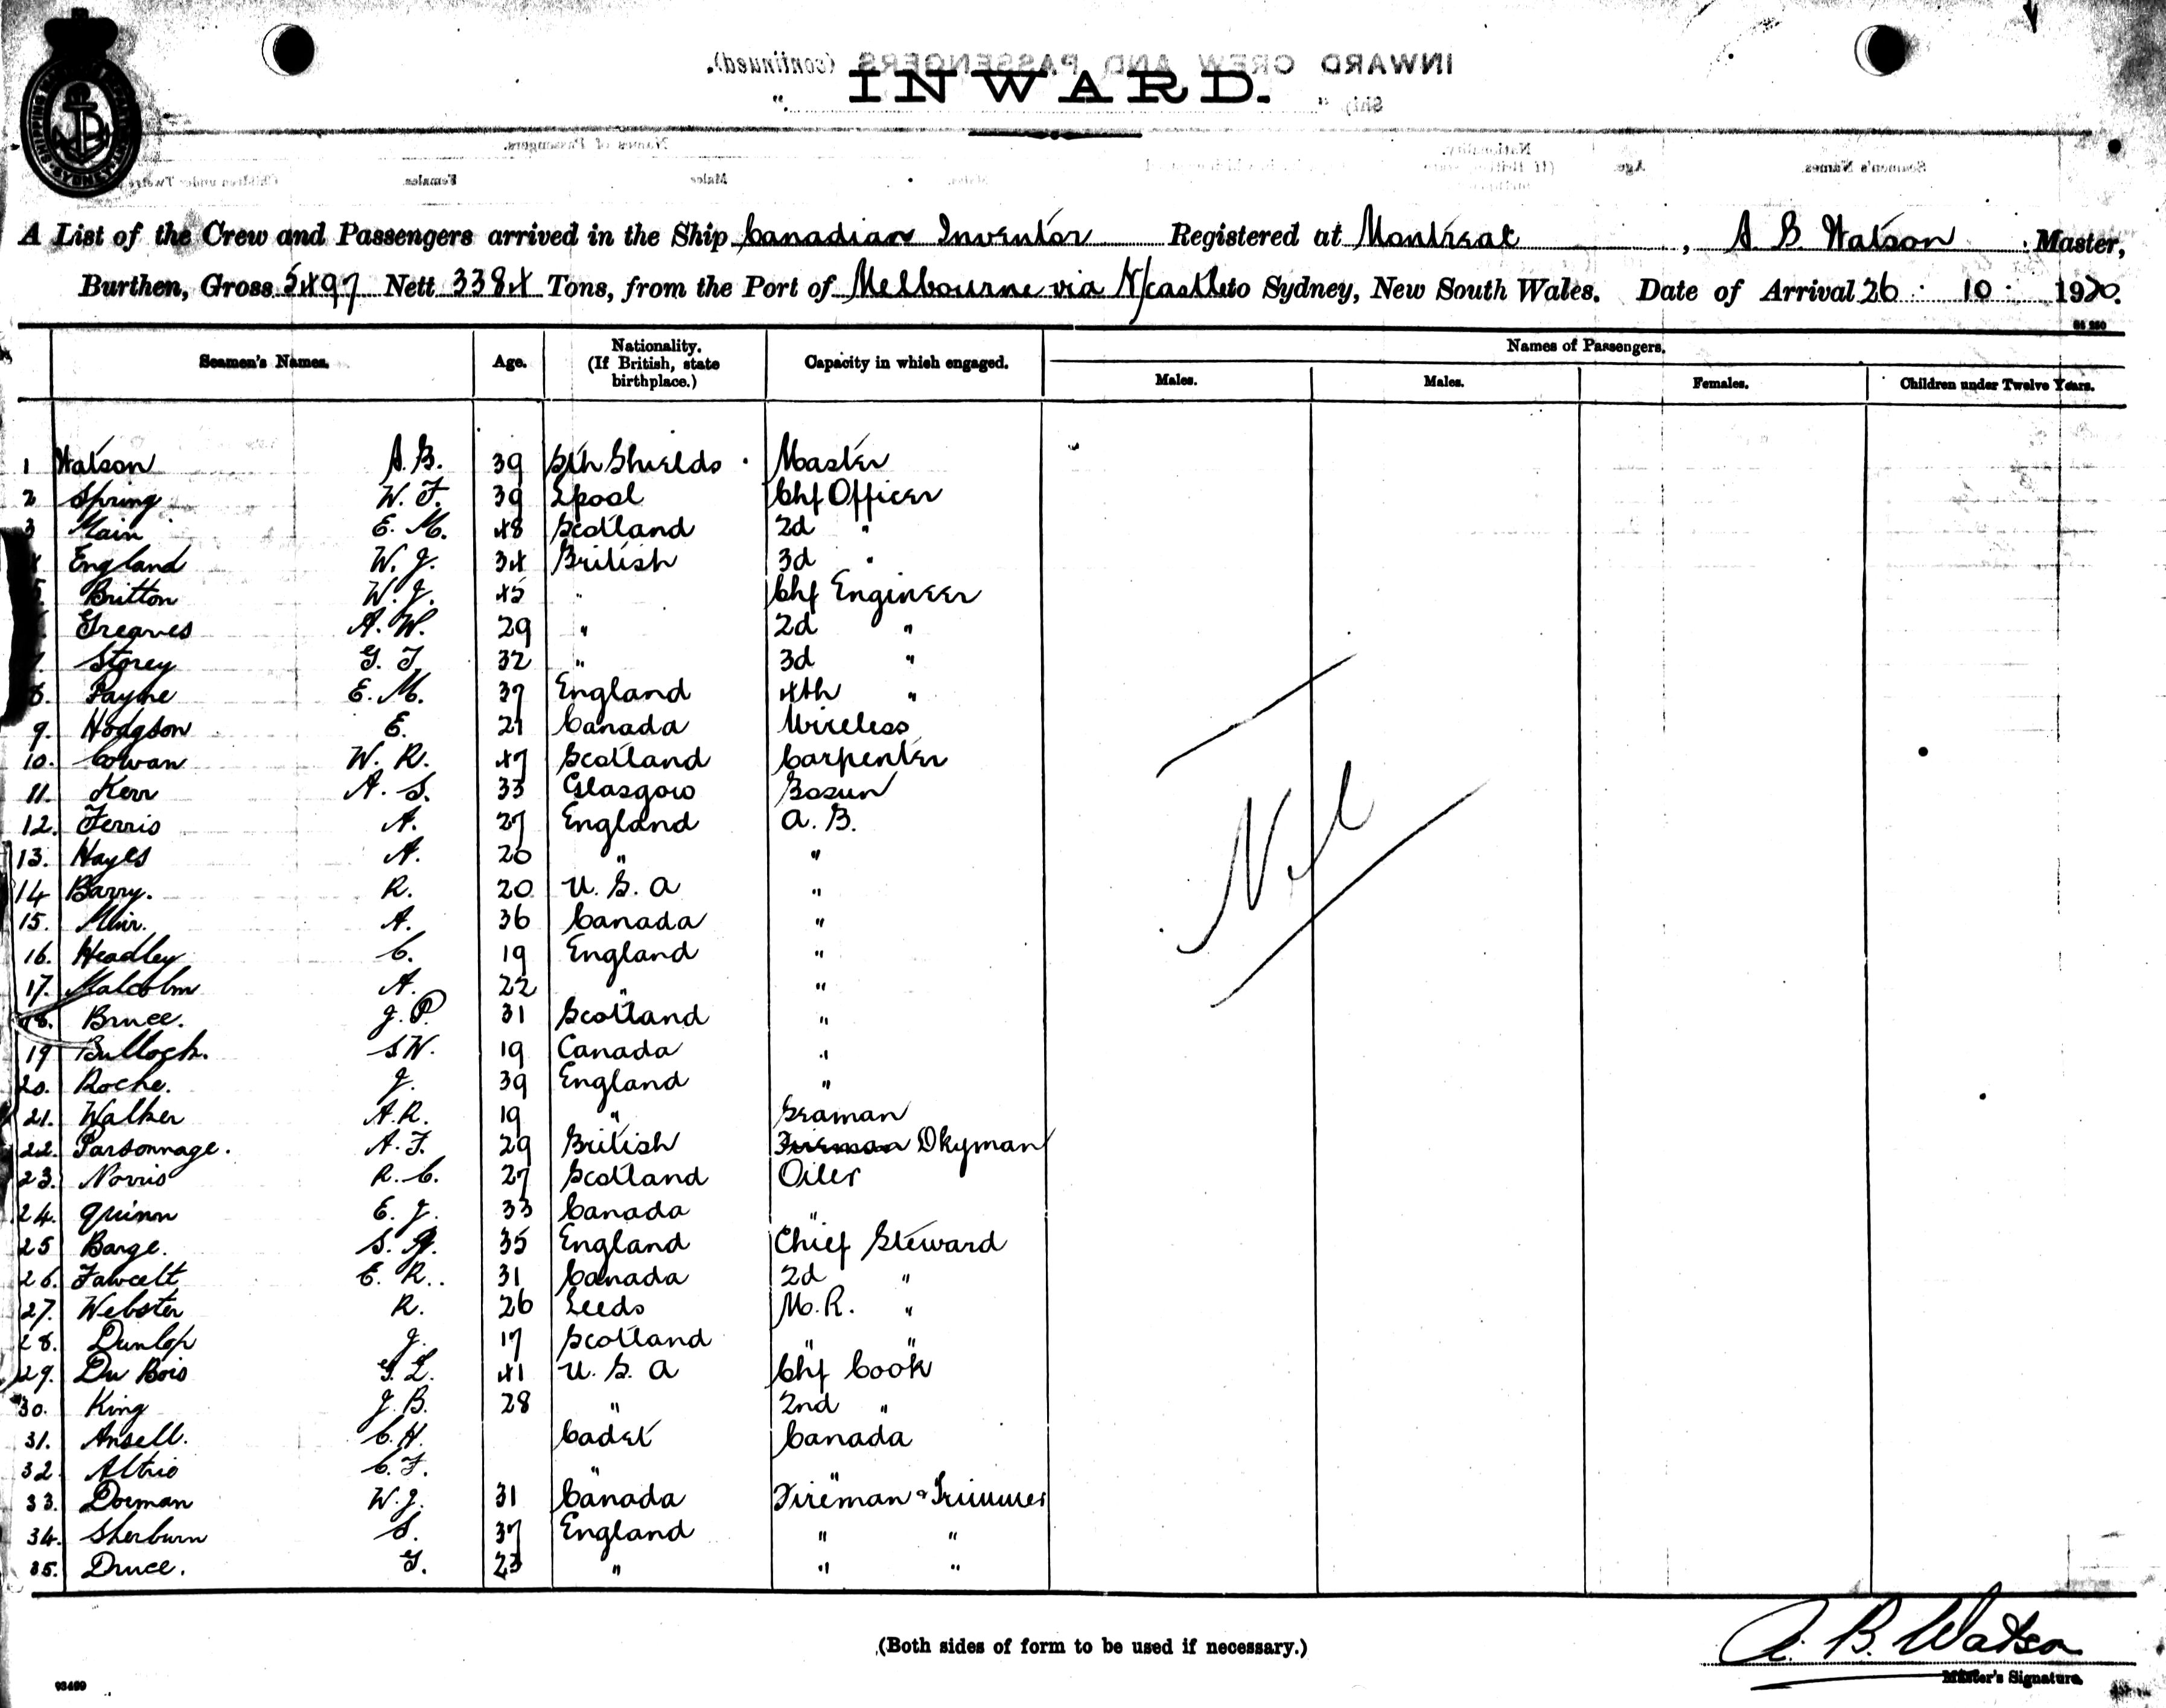 INWARD.
A List of the Crew and Passengers arrived in the Ship Canadian Inventor Registered at Montreal, A B Watson Master,
Burthen, Gross 5497 Nett 3384 Tons, from the Port of Melbourne via N/castle to Sydney, New South Wales. Date of Arrival 26 . 10 . 1920.
Seamen's Names. Age. Nationality. (If British, state birthplace.) Capacity in which engaged. Names of Passengers.
Males. Males. Females. Children under Twelve Years.
1 Watson A. B. 39 Sth Shields Master
2 Spring W. F. 39 Lpool Chf Officer
3 Main E. M. 48 Scotland 2d "
4 England W. J. 34 British 3d "
5. Britton W. J. 45 " Chf Engineer
Greaves A. W. 29 " 2d "
7. Storey G. T. 32 " 3d "
8. Payne E. M. 37 England 4th "
9. Hodgson E. 21 Canada Wireless
10. Cowan W. R. 47 Scotland Carpenter
11. Kerr A. S. 33 Glasgow Bosun
12. Ferris A. 27 England A. B.
13. Hayes A. 20 " "
14 Barry. R. 20 U. S. A "
15. Muir. A. 36 Canada "
16. Headley C. 19 England "
17. Malcolm A. 22 " "
18. Bruce. J. P. 31 Scotland "
19 Bullock. S W. 19 Canada "
20. Roche. J. 39 England "
21. Walker A. R. 19 " Seaman
22. Parsonnage. A. F. 29 British Fireman Dkyman
23. Norris R. C. 27 Scotland Oiler
24. Quinn E. J. 33 Canada "
25 Barge. S. 35 England Chief Steward
26. Fawcett E. R.. 31 Canada 2d "
27. Webster R. 26 Leeds M. R. "
28. Dunlop J. 17 Scotland " "
29. Du Bois L. 41 U. S. A Chf Cook
30. King J. B. 28 " 2nd "
31. Ansell. C. H. Cadet Canada
32 C. F. " "
33. Dorman W. J. 31 Canada Fireman & Trimmer
34. Sherburn S. 37 England " "
35. Druce. G. 23 " " "
Nil
(Both sides of form to be used if necessary.)
A. B. Watson
Master's Signature.
93499